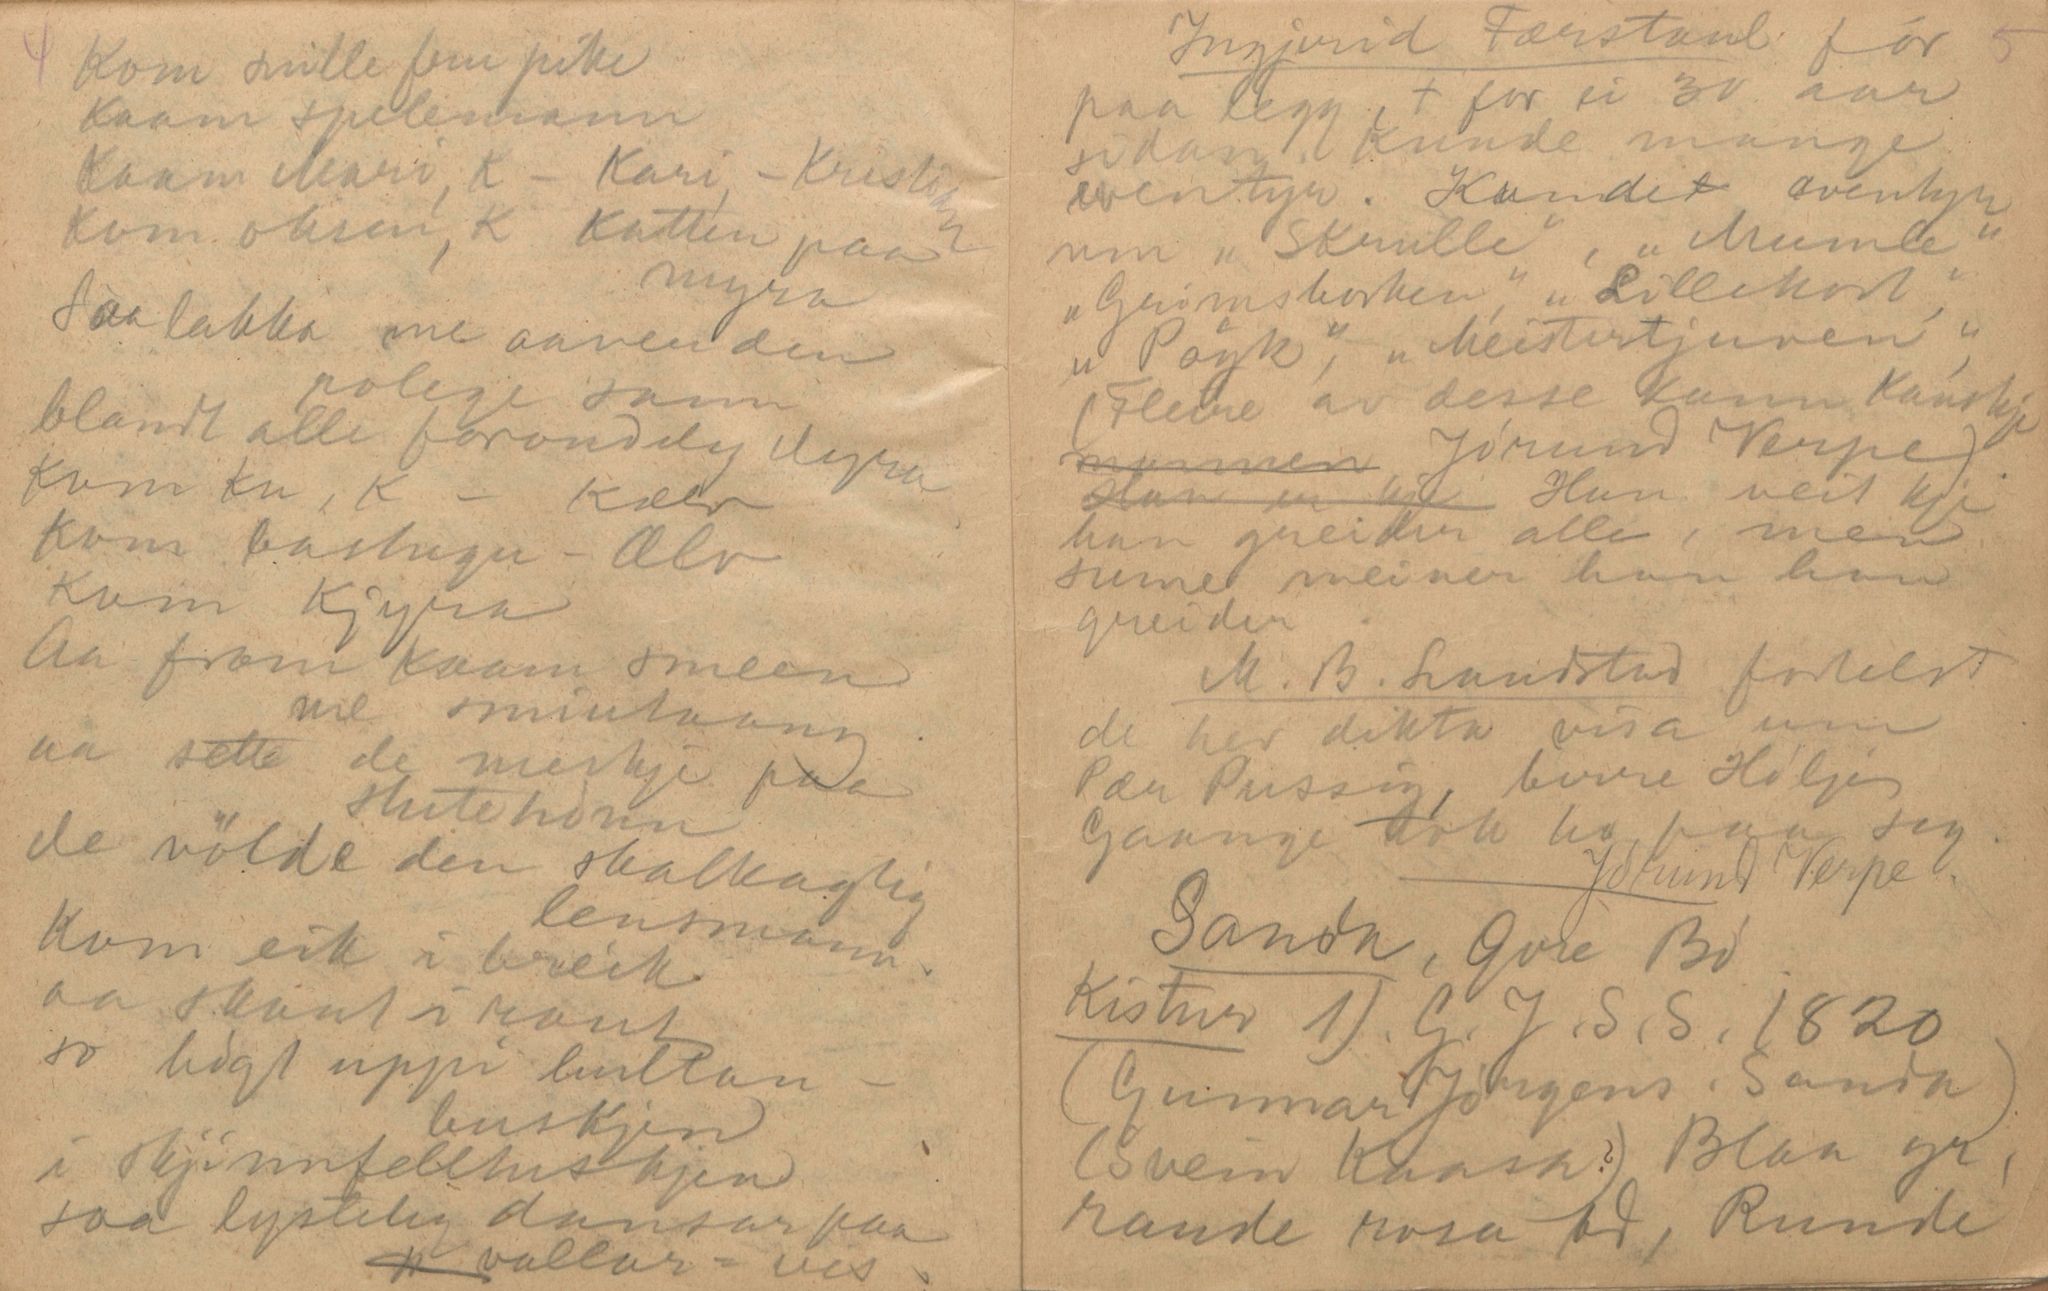 4
Kom snille fem pike
Kaam spelemann
Kaam Mari, K – Kari, – Kristian
Kom oksen, K Katten paa
myra
Saa lakka me aavenden
rolege saun
blandt alle forondeleg dyra
Kom ku, K – Kalv
Kom bastugu – Ælv
Kom Kjyra
Aa fram kaam smeen
me smiutaang.
aa sette de merkje paa
stutehónn
de völde den skalkagtig
lensmann.
Kom eik i breik
aa skaut i raut
so högt uppi bultan –
buskjen
i skjinnfelltuskjen
soa lysteleg dansar paa
vallar-vis.
5
Ingjerid Færstaul fór
paa legg, + for ei 30 aar
sidan. Kunde mange
eventyr. Kunde eventyr
um „Skrulle", „Mumle"
„Grimsborken", „Lillekort",
„Pøyk", „Meistertjuven",
(Fleire av desse kann kanskje
mannen Jórund Verpe).
Han er kje Han veit kje
han greider alle, men
sume meiner han han
greider.
M. B. Landstad fortelst
de her dikta visa um
Pær Pussig, burre Høljes
Gaange tok ho paa seg.
Jórund Verpe.
Sanda, Gvre Bó
Kistur 1). G. J. S. S. 1820
(Gunnar Jörgens. Sanda)
(Svein Kaasa?) Blaa gr,
rande rosa bd, Runde